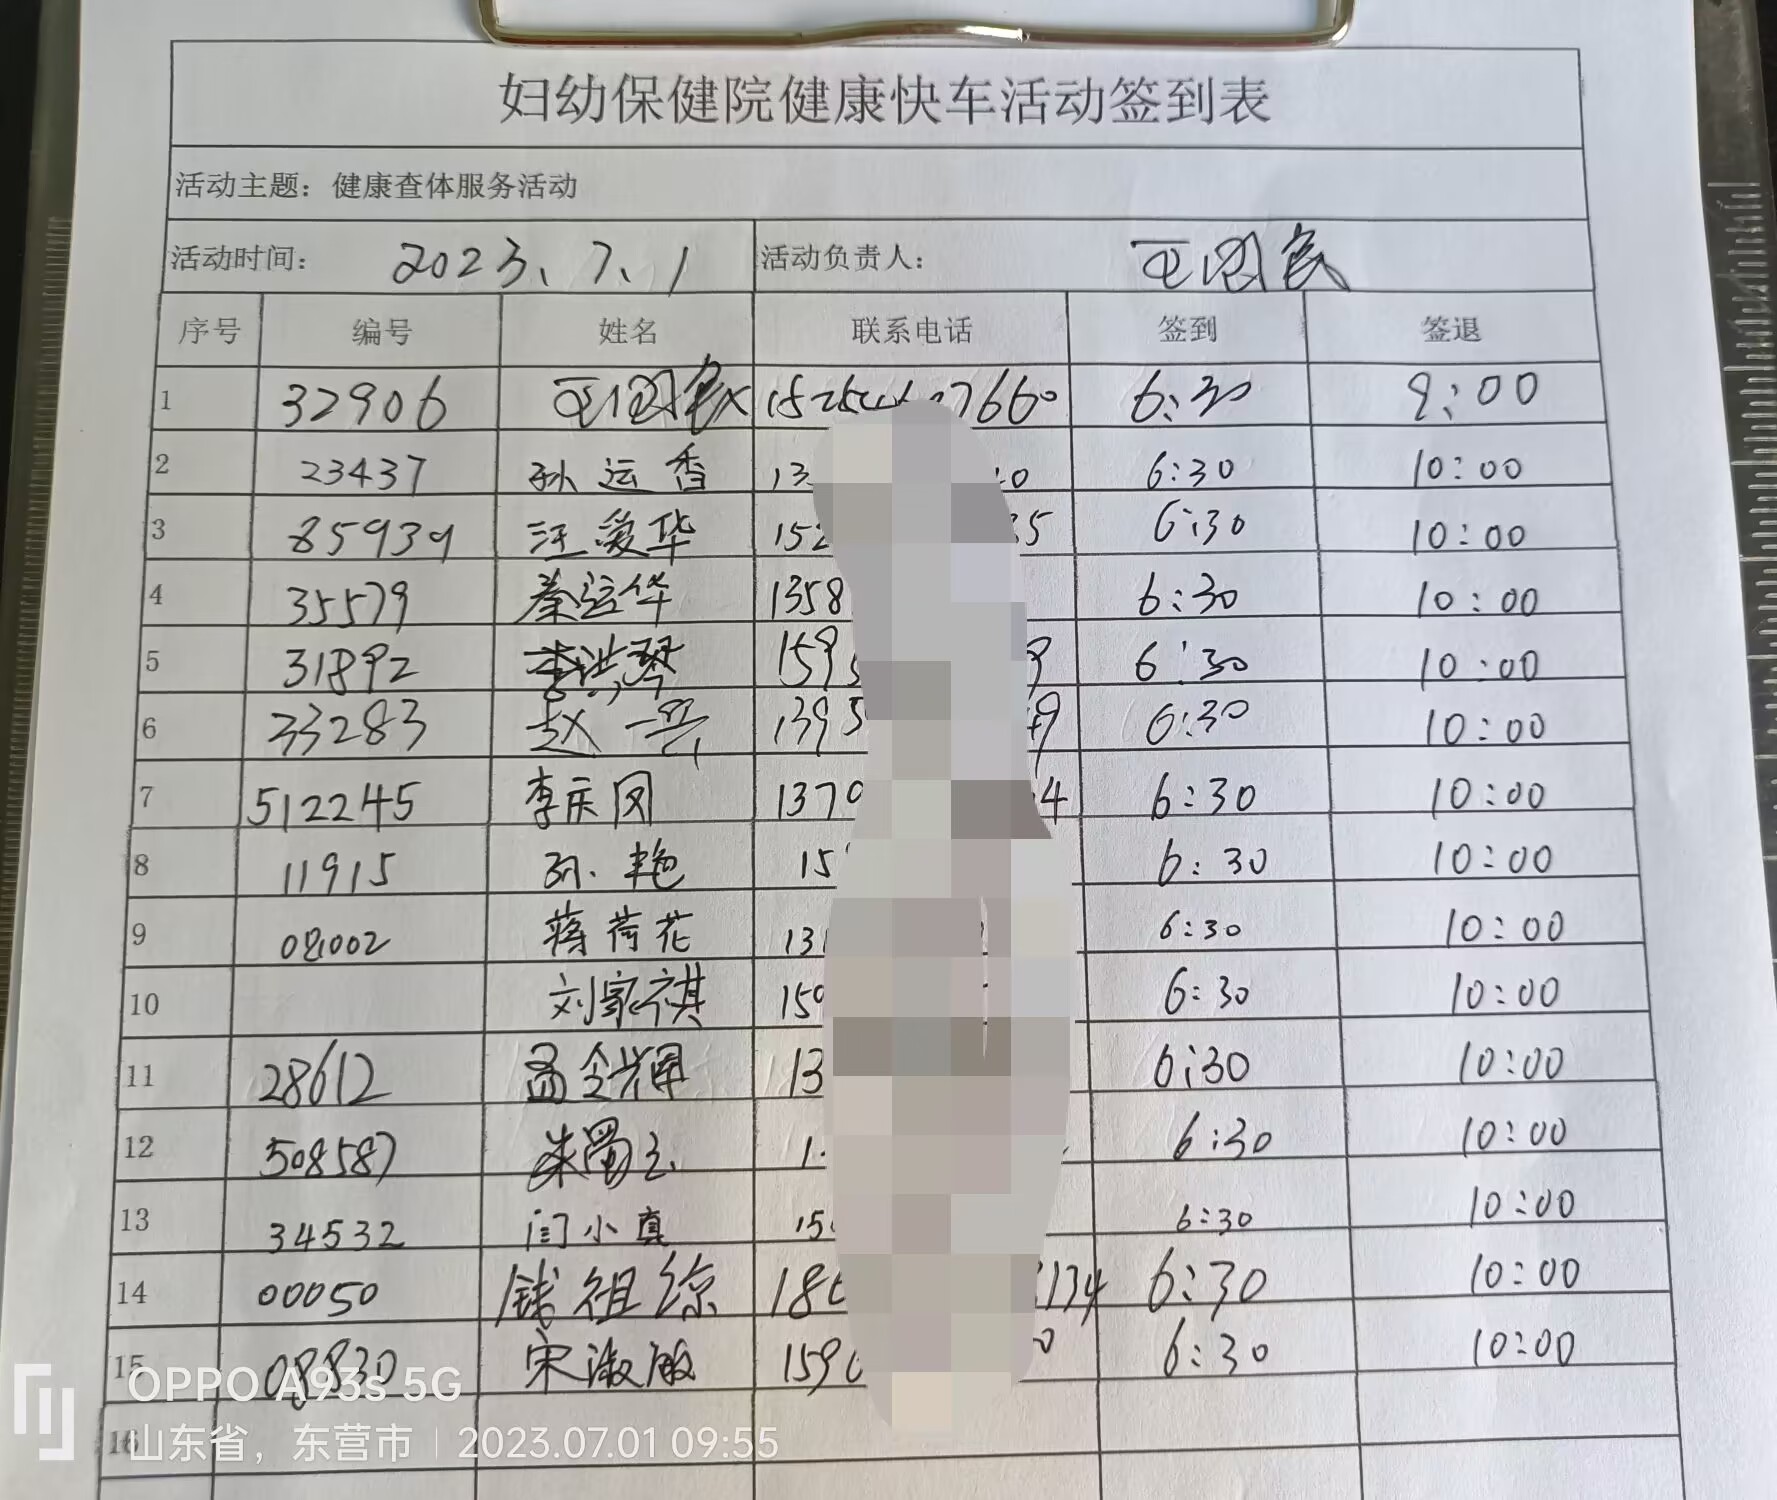 妇幼保健院健康快车活动签到表
活动主题：健康查体服务活动
活动时间： 2023、7、1 活动负责人：
序号 编号 姓名 联系电话 签到 签退
1 32906 6:30 9:00
2 23437 孙运香 13 0 6:30 10:00
3 85939 汪爱华 152 35 6:30 10:00
4 35579 秦运华 1358 6:30 10:00
5 31892 李洪琴 1595 9 6:30 10:00
6 33283 赵一兵 1395 49 6:30 10:00
7 512245 李庆凤 1370 4 6:30 10:00
8 11915 孙艳 15 6:30 10:00
9 081002 蒋荷花 131 6:30 10:00
10 刘家祺 150 6:30 10:00
11 28612 孟令辉 13 6:30 10:00
12 508587 朱蜀玉 1 6:30 10:00
13 34532 闫小真 15 6:30 10:00
14 00050 钱祖综 186 134 6:30 10:00
15 08830 宋淑敏 1590 0 6:30 10:00
16
OPPO A93s 5G
山东省，东营市 | 2023.07.01 09:55